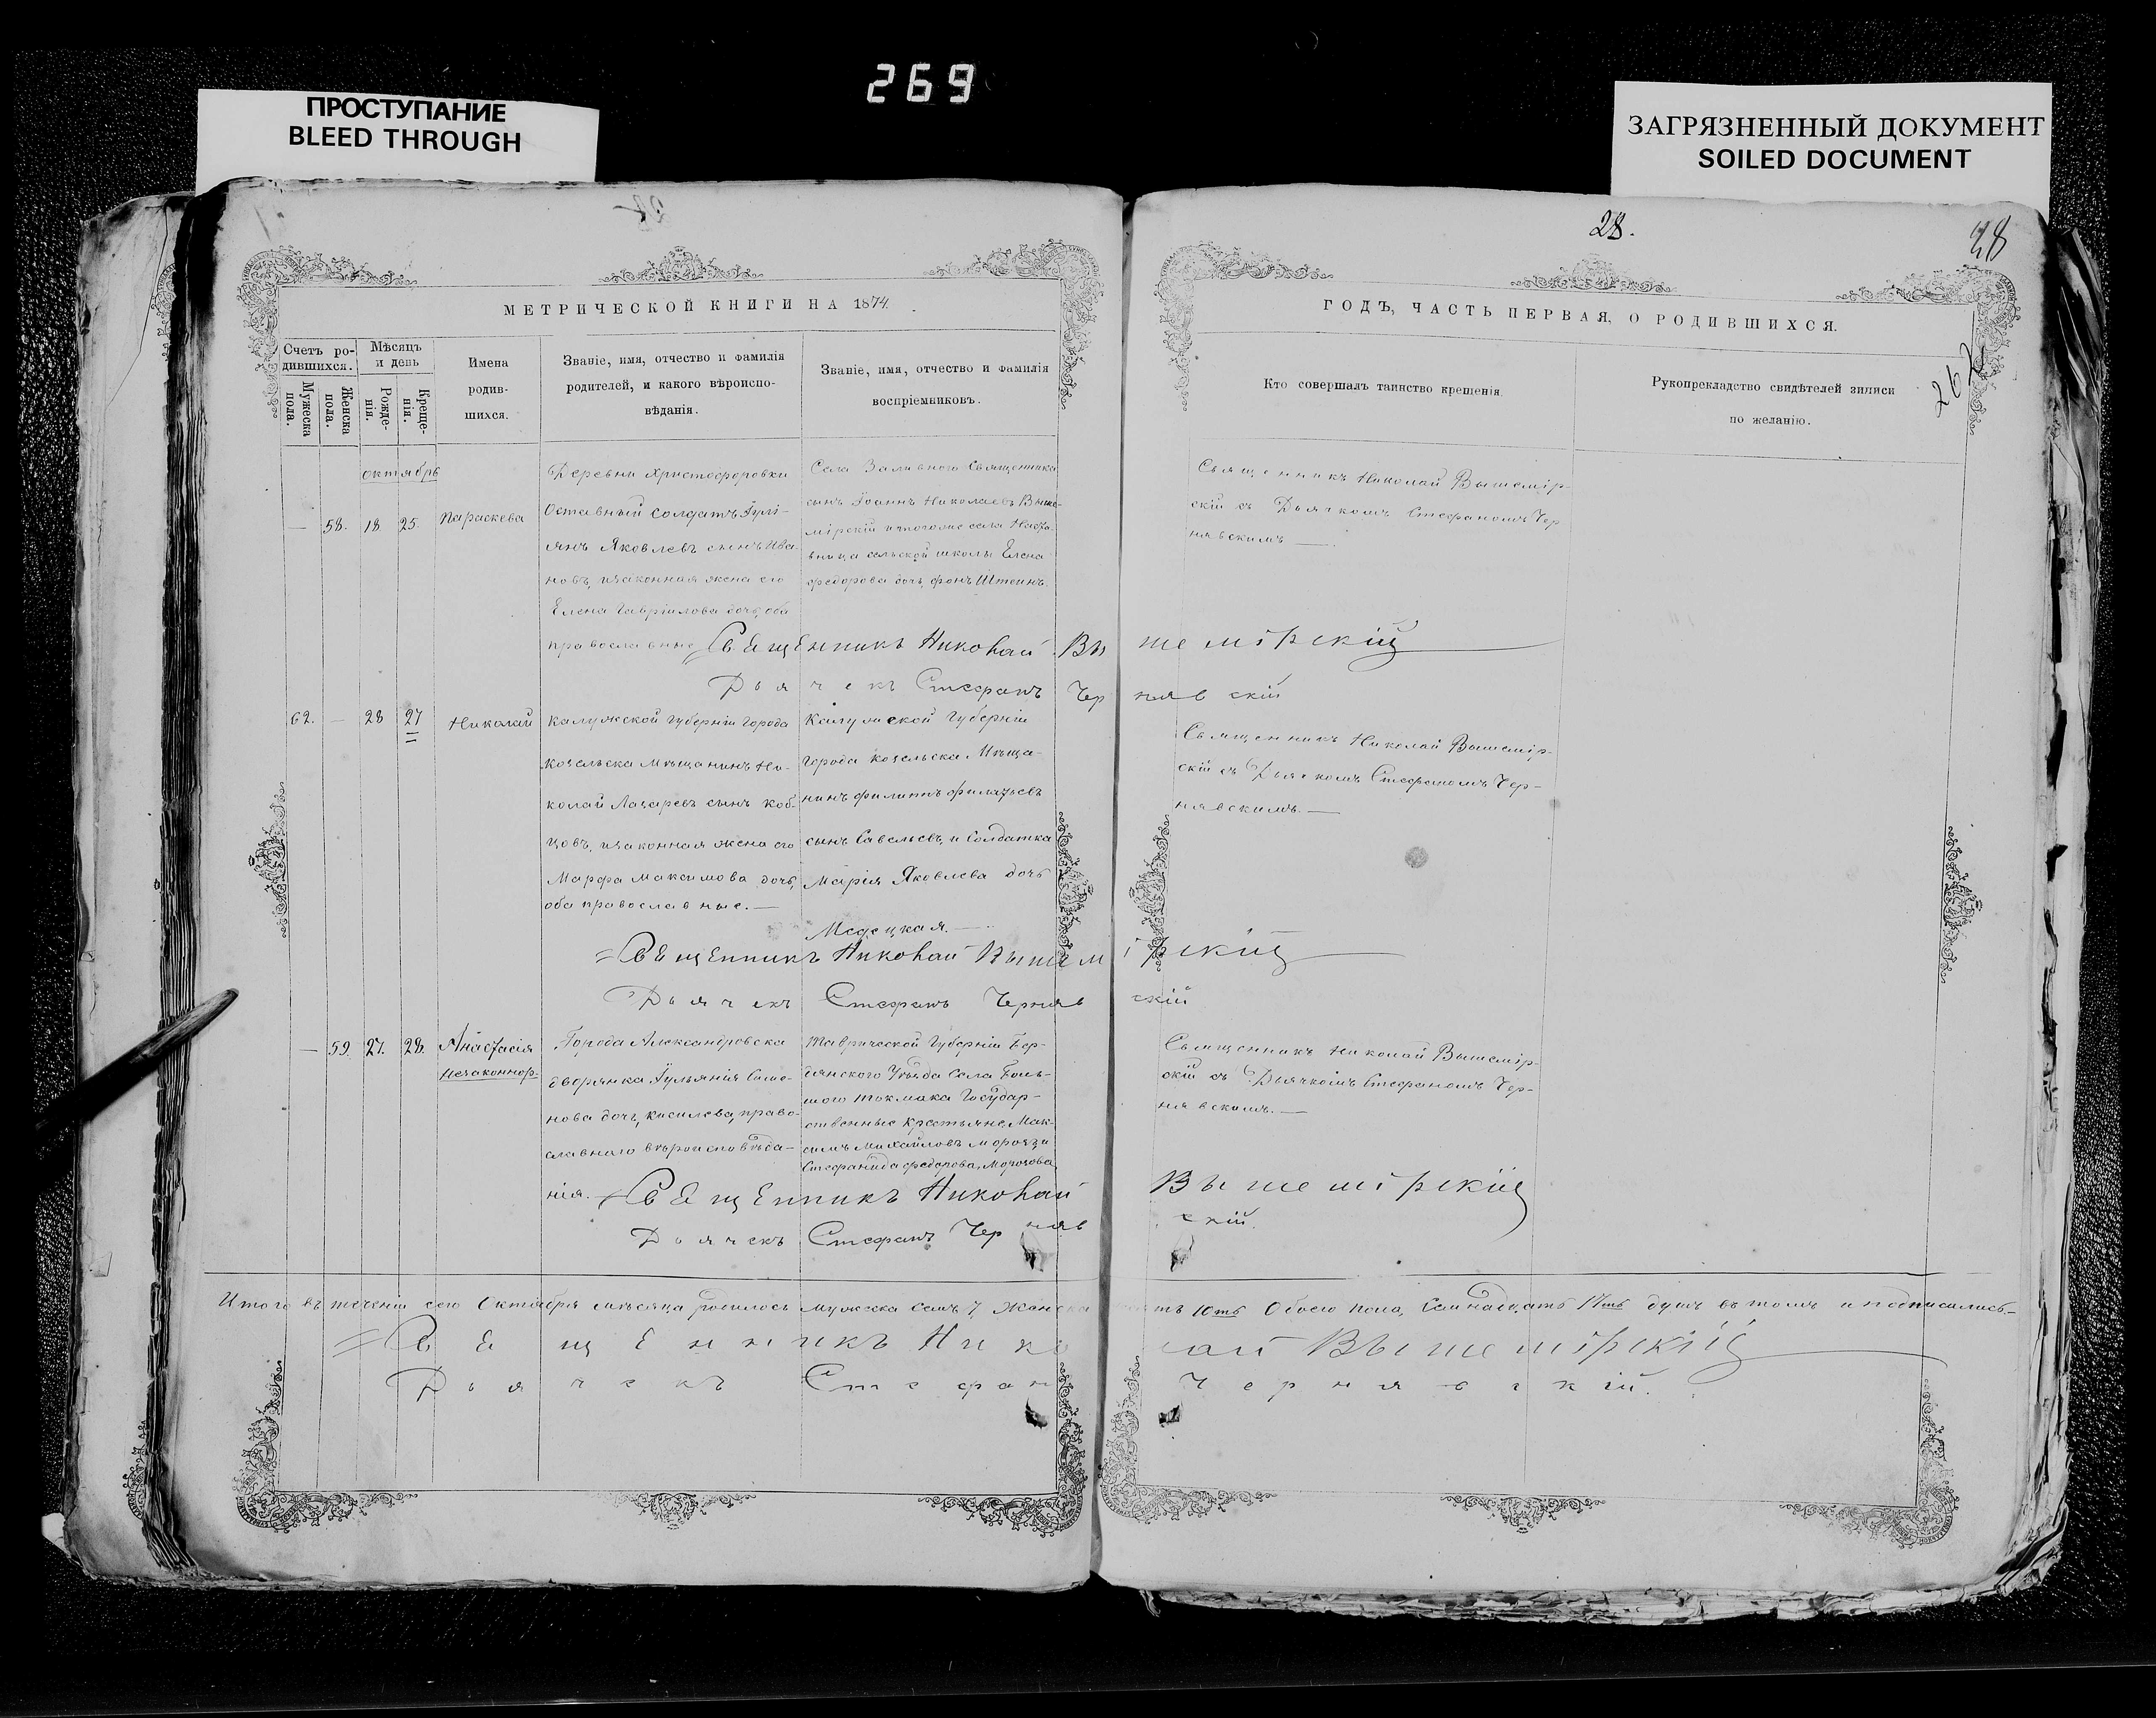 269
ПРОСТУПАНИЕ
BLEED THROUGH
ЗАГРЯЗНЕННЫЙ ДОКУМЕНТ
SOILED DOCUMENT
28.
28
МЕТРИЧЕСКОЙ КНИГИ НА 1874
ГОДЪ, ЧАСТЬ ПЕРВАЯ, О РОДИВШИХСЯ.
Счетъ ро-
дившихся.
Мужеска пола.
Женска пола.
Мѣсяцъ
и день
Рожде-
нія.
Креще-
нія.
Имена
родив-
шихся.
Званіе, имя, отчество и фамилія
родителей, и какого вѣроиспо-
вѣданія.
Званіе, имя, отчество и фамилія
воспріемниковъ.
Кто совершалъ таинство крещенія.
Рукоприкладство свидѣтелей записи
по желанію.
октябрь
— 58. 18 25. Параскева
Деревни Христофоровки
Отставный Солдатъ Іулі-
янъ Яковлевъ сынъ Ива-
новъ, изаконная жена его
Елена Гавріилова дочь, оба
православные
Села Заливного Священника
сынъ Іоаннъ Николаевъ Выше-
мірскій итогоже села
вница сельской школы Елена
Федорова дочь, фонъ Штеинъ.
Священникъ Николай Вышемір-
скій съ Дьячкомъ Стефаномъ Чер
нявскимъ —
Священникъ Николай Вышемірскій
Дьячекъ Стефанъ Чернявскій
62. — 28 27 Николай
Калужской Губерніи Города
Козельска Мѣщанинъ Ни-
колай Лазаревъ сынъ Коб-
цовъ, изаконная жена его
Марфа Максимова дочь,
оба православные. —
Калужской Губерніи
города Козельска. Мѣща-
нинъ Филиппъ
сынъ Савельевъ, и Солдатка
Марія Яковлева дочь
Священникъ Николай Вышемір-
скій съ Дьячкомъ Стефаномъ Чер-
нявскимъ. —
Священникъ Николай Вышемірскій
Дьячекъ Стефанъ Чернявскій
— 59. 27. 28. Анастасія
Незаконнор.
Города Александровска
дворянка Іульянія Симе-
нова дочь, Киселева, право-
славнаго вѣроисповѣда-
нія.
Таврической Губерніи Бер-
дянского Уѣзда Села Боль-
шого Токмака Государ-
ственные крестьяне, Мак-
симъ Михайловъ Морозъ и
Стефанида Федорова, Морозова
Священникъ Николай Вышемір-
скій съ Дьячкомъ Стефаномъ Чер-
нявскимъ. —
Священникъ Николай Вышемірскій
Дьячекъ Стефанъ Чернявскій.
Итого въ теченіи сего Октября мѣсяца родилось мужеска семь 7, Женска 10ть Обоего пола, Семнадцать 17ть душъ въ томъ и подписались.—
Священникъ Николай Вышемірскій
Дьячекъ Стефанъ Чернявскій.